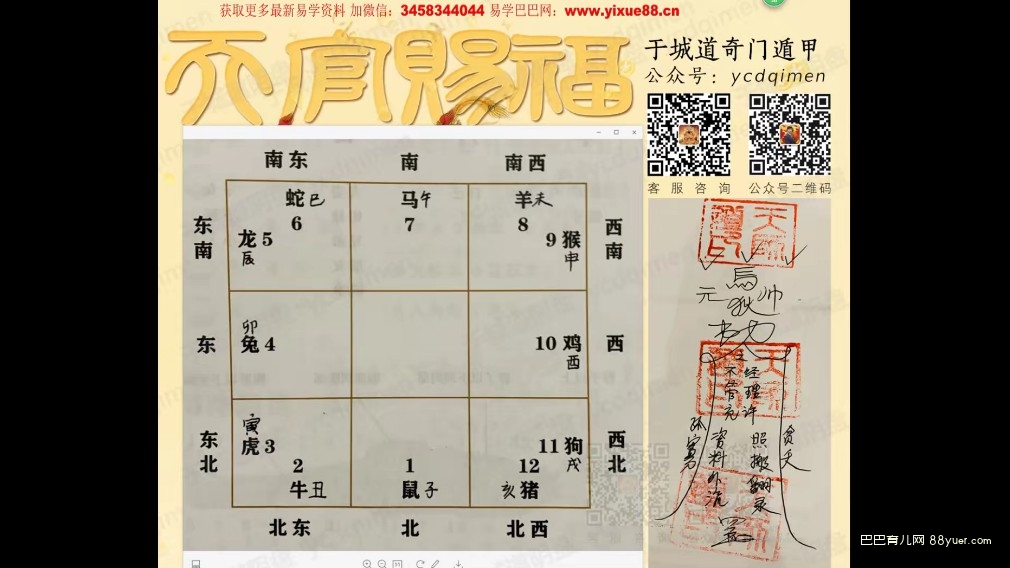 获取更多最新易学资料 加微信：3458344044 易学巴巴网：www.yixue88.cn
天官賜福
于城道奇门遁甲
公众号：ycdqimen
客服咨询
公众号二维码
南东 南 南西
蛇巳 马午 羊未
6 7 8
东南
龙5
辰
9猴
申
西南
卯
东 兔4
10鸡 西
酉
寅
东北 虎3
11狗
戌
西北
2 1 12
牛丑 鼠子 亥猪
北东 北 北西
馬
元 帅
经理许
不管充
资料外流
照搬翻录
巴巴育儿网 88yuer.com